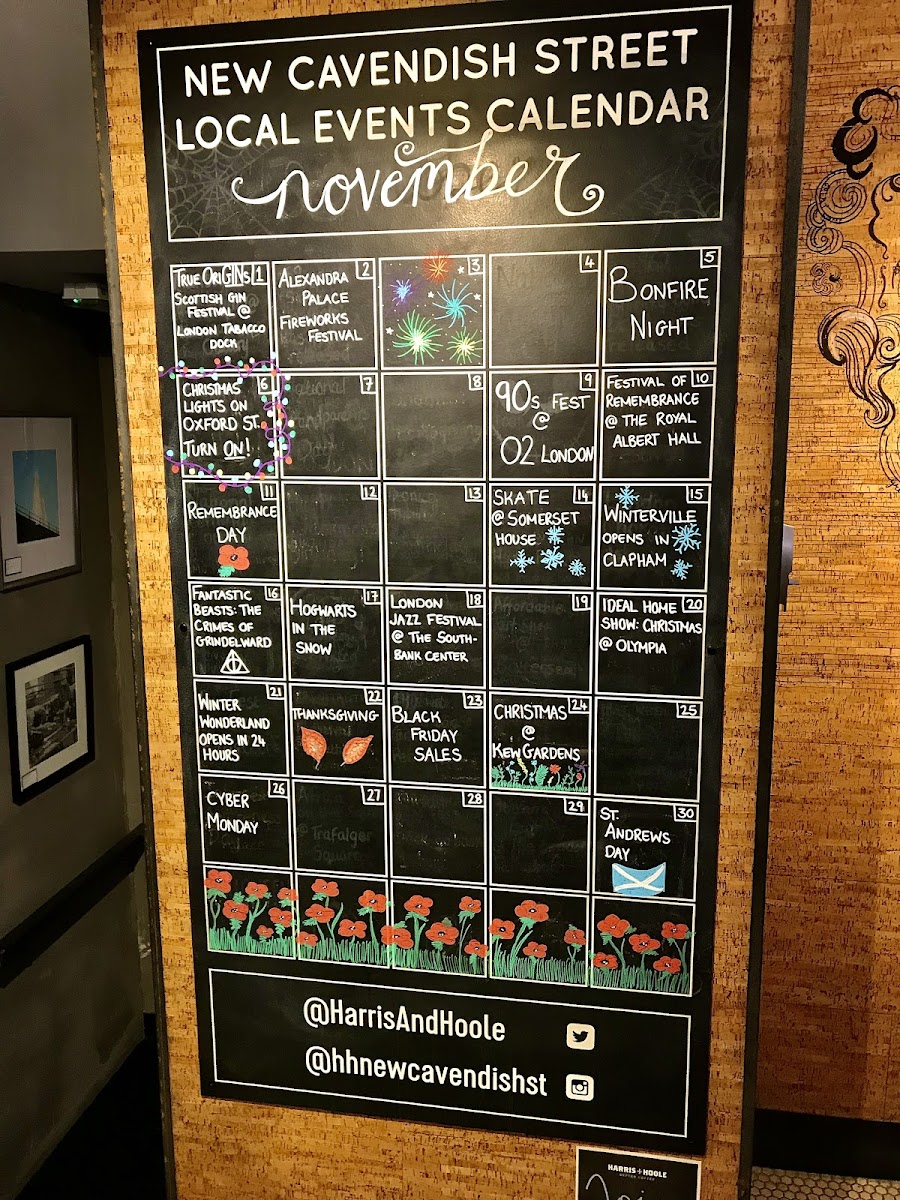 NEW CAVENDISH STREET
LOCAL EVENTS CALENDAR
november
TRUE ORIGINS 1
SCOTTISH GIN
FESTIVAL @
LONDON TABACCO
DOCK
2
ALEXANDRA
PALACE
FIREWORKS
FESTIVAL
3
4
5
BONFIRE
NIGHT
6
CHRISTMAS
LIGHTS ON
OXFORD ST.
TURN ON!
7
8
9
90s FEST
@
O2 LONDON
10
FESTIVAL OF
REMEMBRANCE
@ THE ROYAL
ALBERT HALL
11
REMEMBRANCE
DAY
12
13
14
SKATE
@ SOMERSET
HOUSE
15
WINTERVILLE
OPENS IN
CLAPHAM
16
FANTASTIC
BEASTS: THE
CRIMES OF
GRINDELWARD
17
HOGWARTS
IN THE
SNOW
18
LONDON
JAZZ FESTIVAL
@ THE SOUTH-
BANK CENTER
19
20
IDEAL HOME
SHOW: CHRISTMAS
@ OLYMPIA
21
WINTER
WONDERLAND
OPENS IN 24
HOURS
22
THANKSGIVING
23
BLACK
FRIDAY
SALES
24
CHRISTMAS
@
KEW GARDENS
25
26
CYBER
MONDAY
27
@ Trafalger
Square
28
29
30
ST.
ANDREWS
DAY
@HarrisAndHoole
@hhnewcavendishst
HARRIS + HOOLE